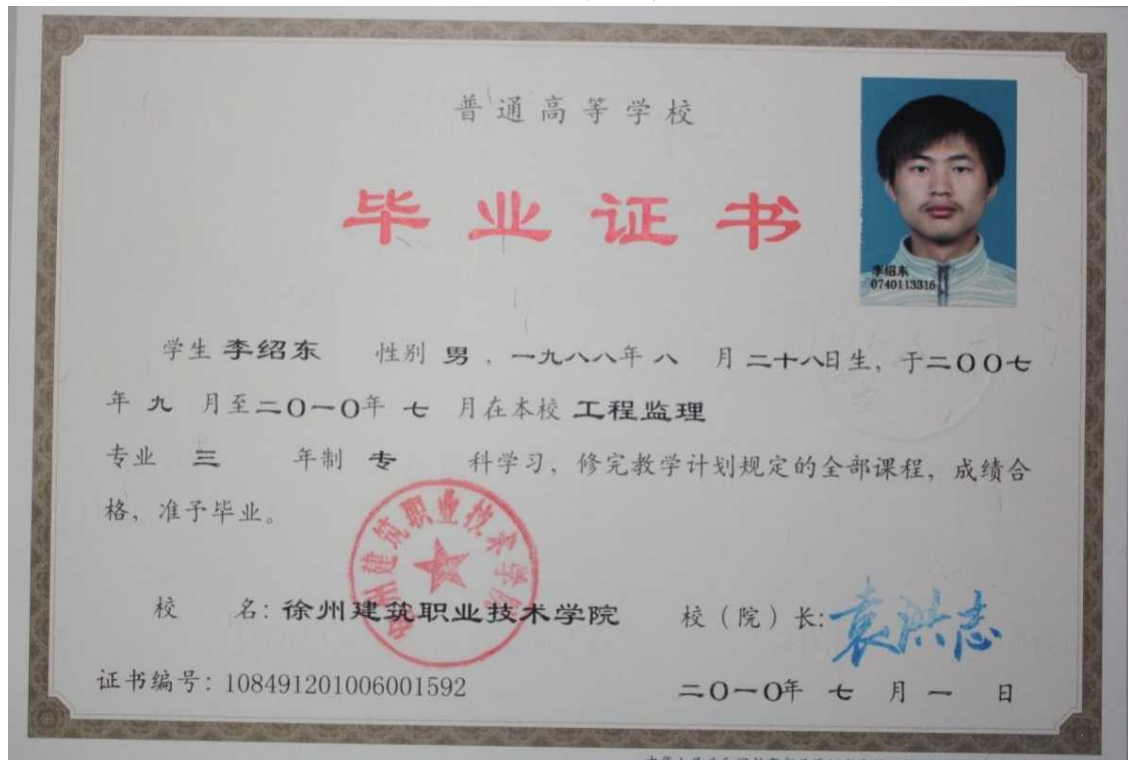 普通高等学校
毕业证书
李绍东
0740113316
学生 李绍东 性别 男 ，一九八八年 八 月 二十八日生，于二〇〇七
年 九 月至二〇一〇年 七 月在本校 工程监理
专业 三 年制 专 科学习，修完教学计划规定的全部课程，成绩合
格，准予毕业。
徐州建筑职业技术学院
校 名：徐州建筑职业技术学院 校（院）长：袁洪志
证书编号：108491201006001592 二〇一〇年 七 月 一 日